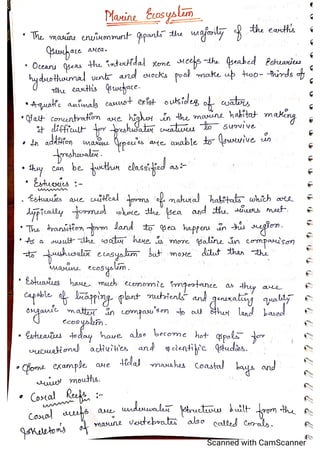 Marine Ecosystem
• The marine environment spans the majority of the earth's
surface area.
• Oceans seas the intertidal zone reefs the seabed estuaries
hydrothermal vents and rocks pool make up two-thirds of
the earth's surface.
• Aquatic animals cannot exist outsides of waters
• Salt concentration are higher in the marine habitat making
it difficult for freshwater creatures to survive
• In addition marine species are unable to survive in
freshwater.
• They can be further classified as:-
• Estuaries :-
. Estuaries are critical forms of natural habitats which are
typically formed where the sea and the rivers met.
• The transition from land to sea happens in this region.
• As a result the water here is more saline in comparison
to freshwater ecosystem but more dilut than the
marine ecosystem.
• Estuaries have much economic importance as they are
capable of trapping plant nutrients and generating quality
organic matter in comparison to all other land based
ecosystem.
• Estuaries today have also become hot spots for
recreational activities and scientific studies.
• Some example are tidal marshes coastal bays and
river mouths.
• Coral Reefs :-
Coral reefs are underwater structures built from the
skeletons of marine vertebrates also called corals.
Scanned with CamScanner